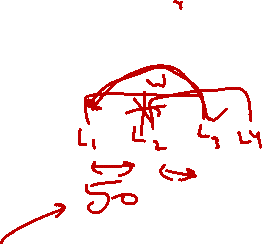 W
L1 L2 L3 L4
50